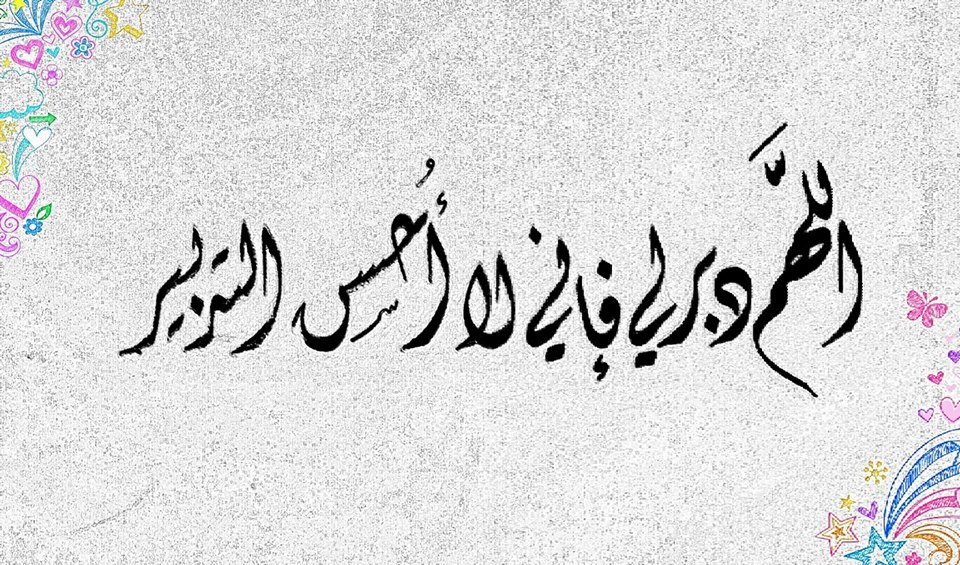 اللهمَّ دبر لي فإني لا أُحسن التدبير